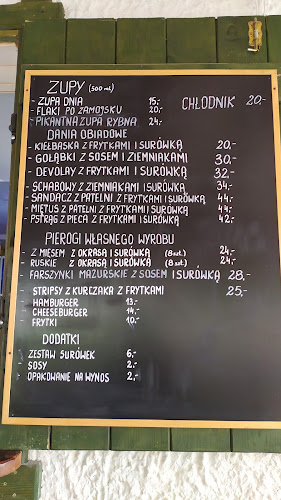 ZUPY (500 ml)
- ZUPA DNIA 15.-
- FLAKI PO ZAMOJSKU 20.-
CHŁODNIK 20.-
- PIKANTNA ZUPA RYBNA 24.-
DANIA OBIADOWE
- KIEŁBASKA Z FRYTKAMI I SURÓWKĄ 20.-
- GOŁĄBKI Z SOSEM I ZIEMNIAKAMI 30.-
- DEVOLAY Z FRYTKAMI I SURÓWKĄ 32.-
- SCHABOWY Z ZIEMNIAKAMI I SURÓWKĄ 34.-
- SANDACZ Z PATELNI Z FRYTKAMI I SURÓWKĄ 44.-
- MIĘTUS Z PATELNI Z FRYTKAMI I SURÓWKĄ 44.-
- PSTRĄG Z PIECA Z FRYTKAMI I SURÓWKĄ 42.-
PIEROGI WŁASNEGO WYROBU
- Z MIĘSEM Z OKRASĄ I SURÓWKĄ (8 szt.) 24.-
- RUSKIE Z OKRASĄ I SURÓWKĄ (8 szt.) 24.-
- FARSZYNKI MAZURSKIE Z SOSEM I SURÓWKĄ 28.-
STRIPSY Z KURCZAKA Z FRYTKAMI 25.-
HAMBURGER 13.-
CHEESEBURGER 14.-
FRYTKI 10.-
DODATKI
- ZESTAW SURÓWEK 6.-
- SOSY 2.-
- OPAKOWANIE NA WYNOS 2.-